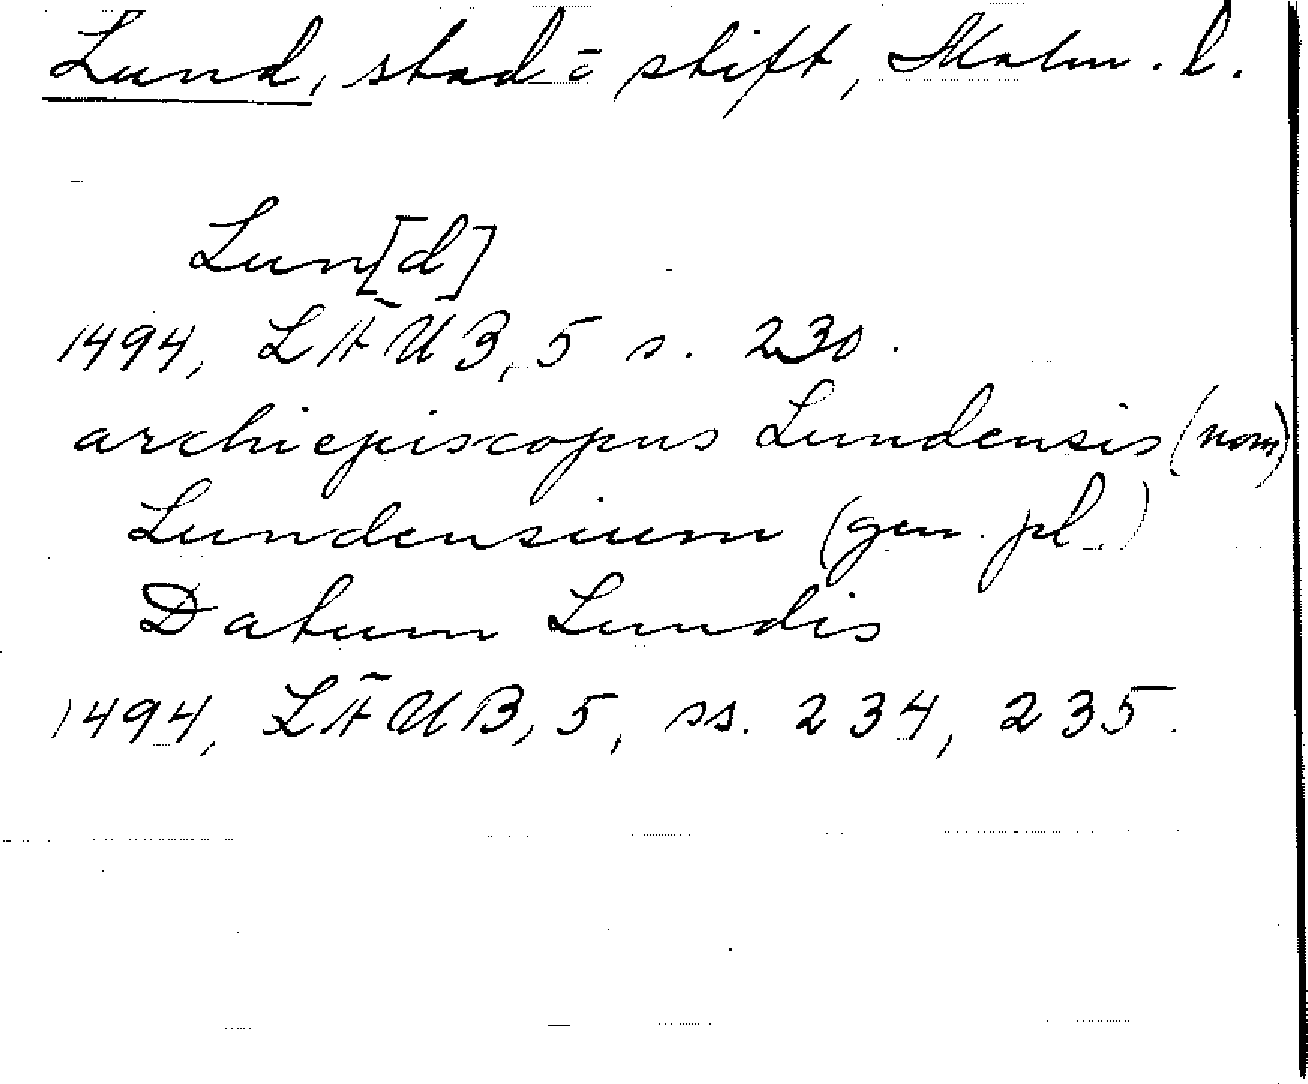 Lund, stad o stift, Malm. l.
Lun[d]
1494, LÄUB, 5 s. 230.
archiepiscopus Lundensis (nom)
Lundensium (gen. pl.)
Datum Lundis
1494, LÄUB, 5, ss. 234, 235.